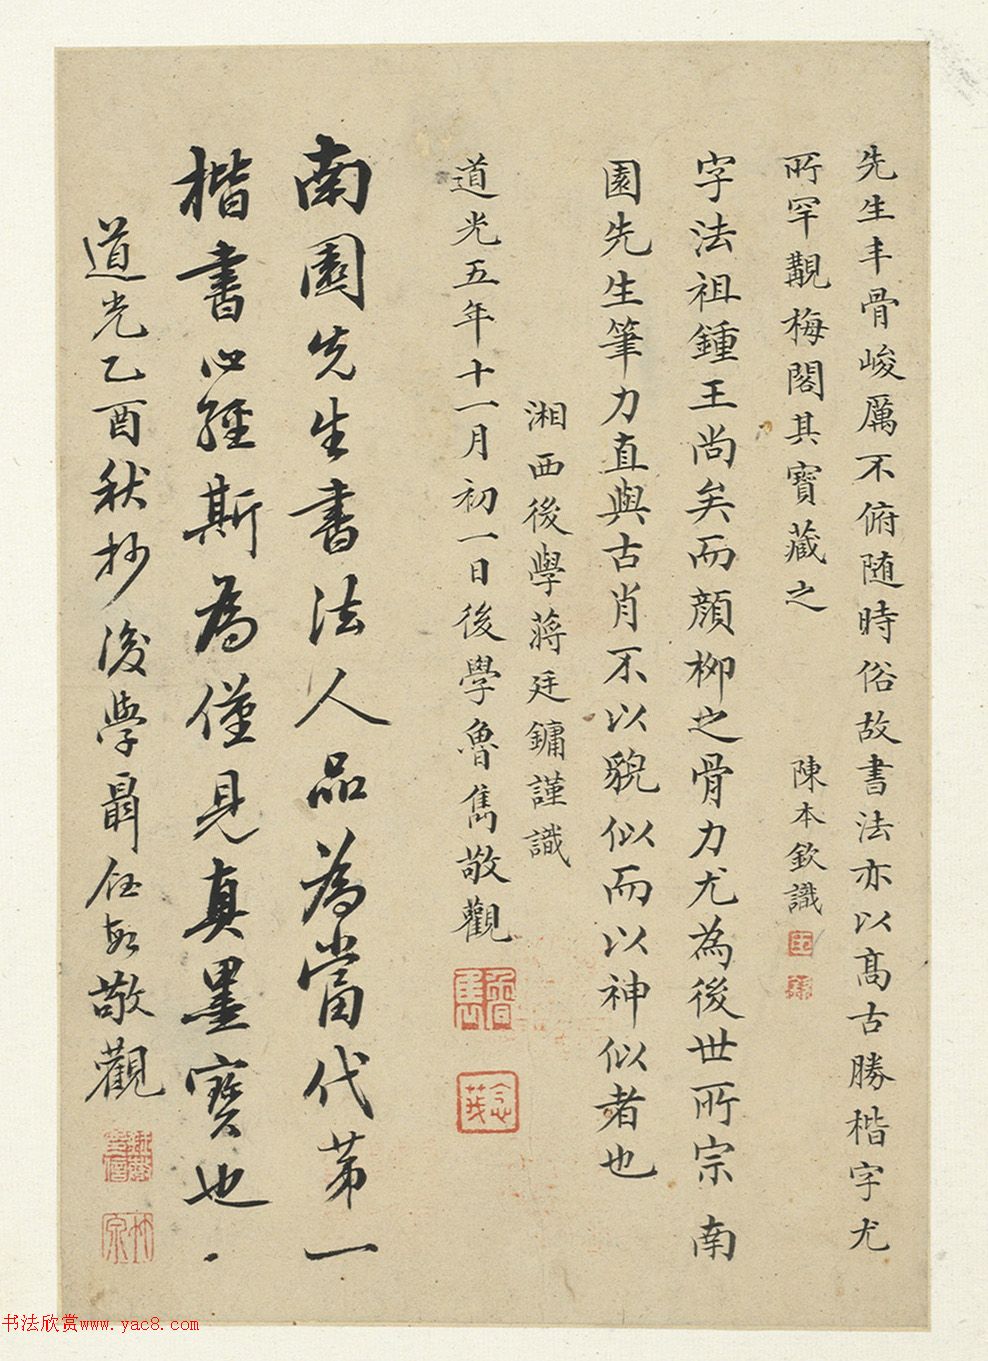 先生丰骨峻厲不俯随時俗故書法亦以高古勝楷字尤
所罕覯梅閣其寶藏之
陳本欽識
字法祖鍾王尚矣而顏柳之骨力尤為後世所宗南
園先生筆力直與古肖不以貌似而以神似者也
湘西後學蔣廷鏞謹識
道光五年十一月初一日後學魯雋敬觀
南園先生書法人品為當代第一
楷書心經斯為僅見真墨寶也
道光乙酉秋抄後學聶敬觀
书法欣赏www.yac8.com